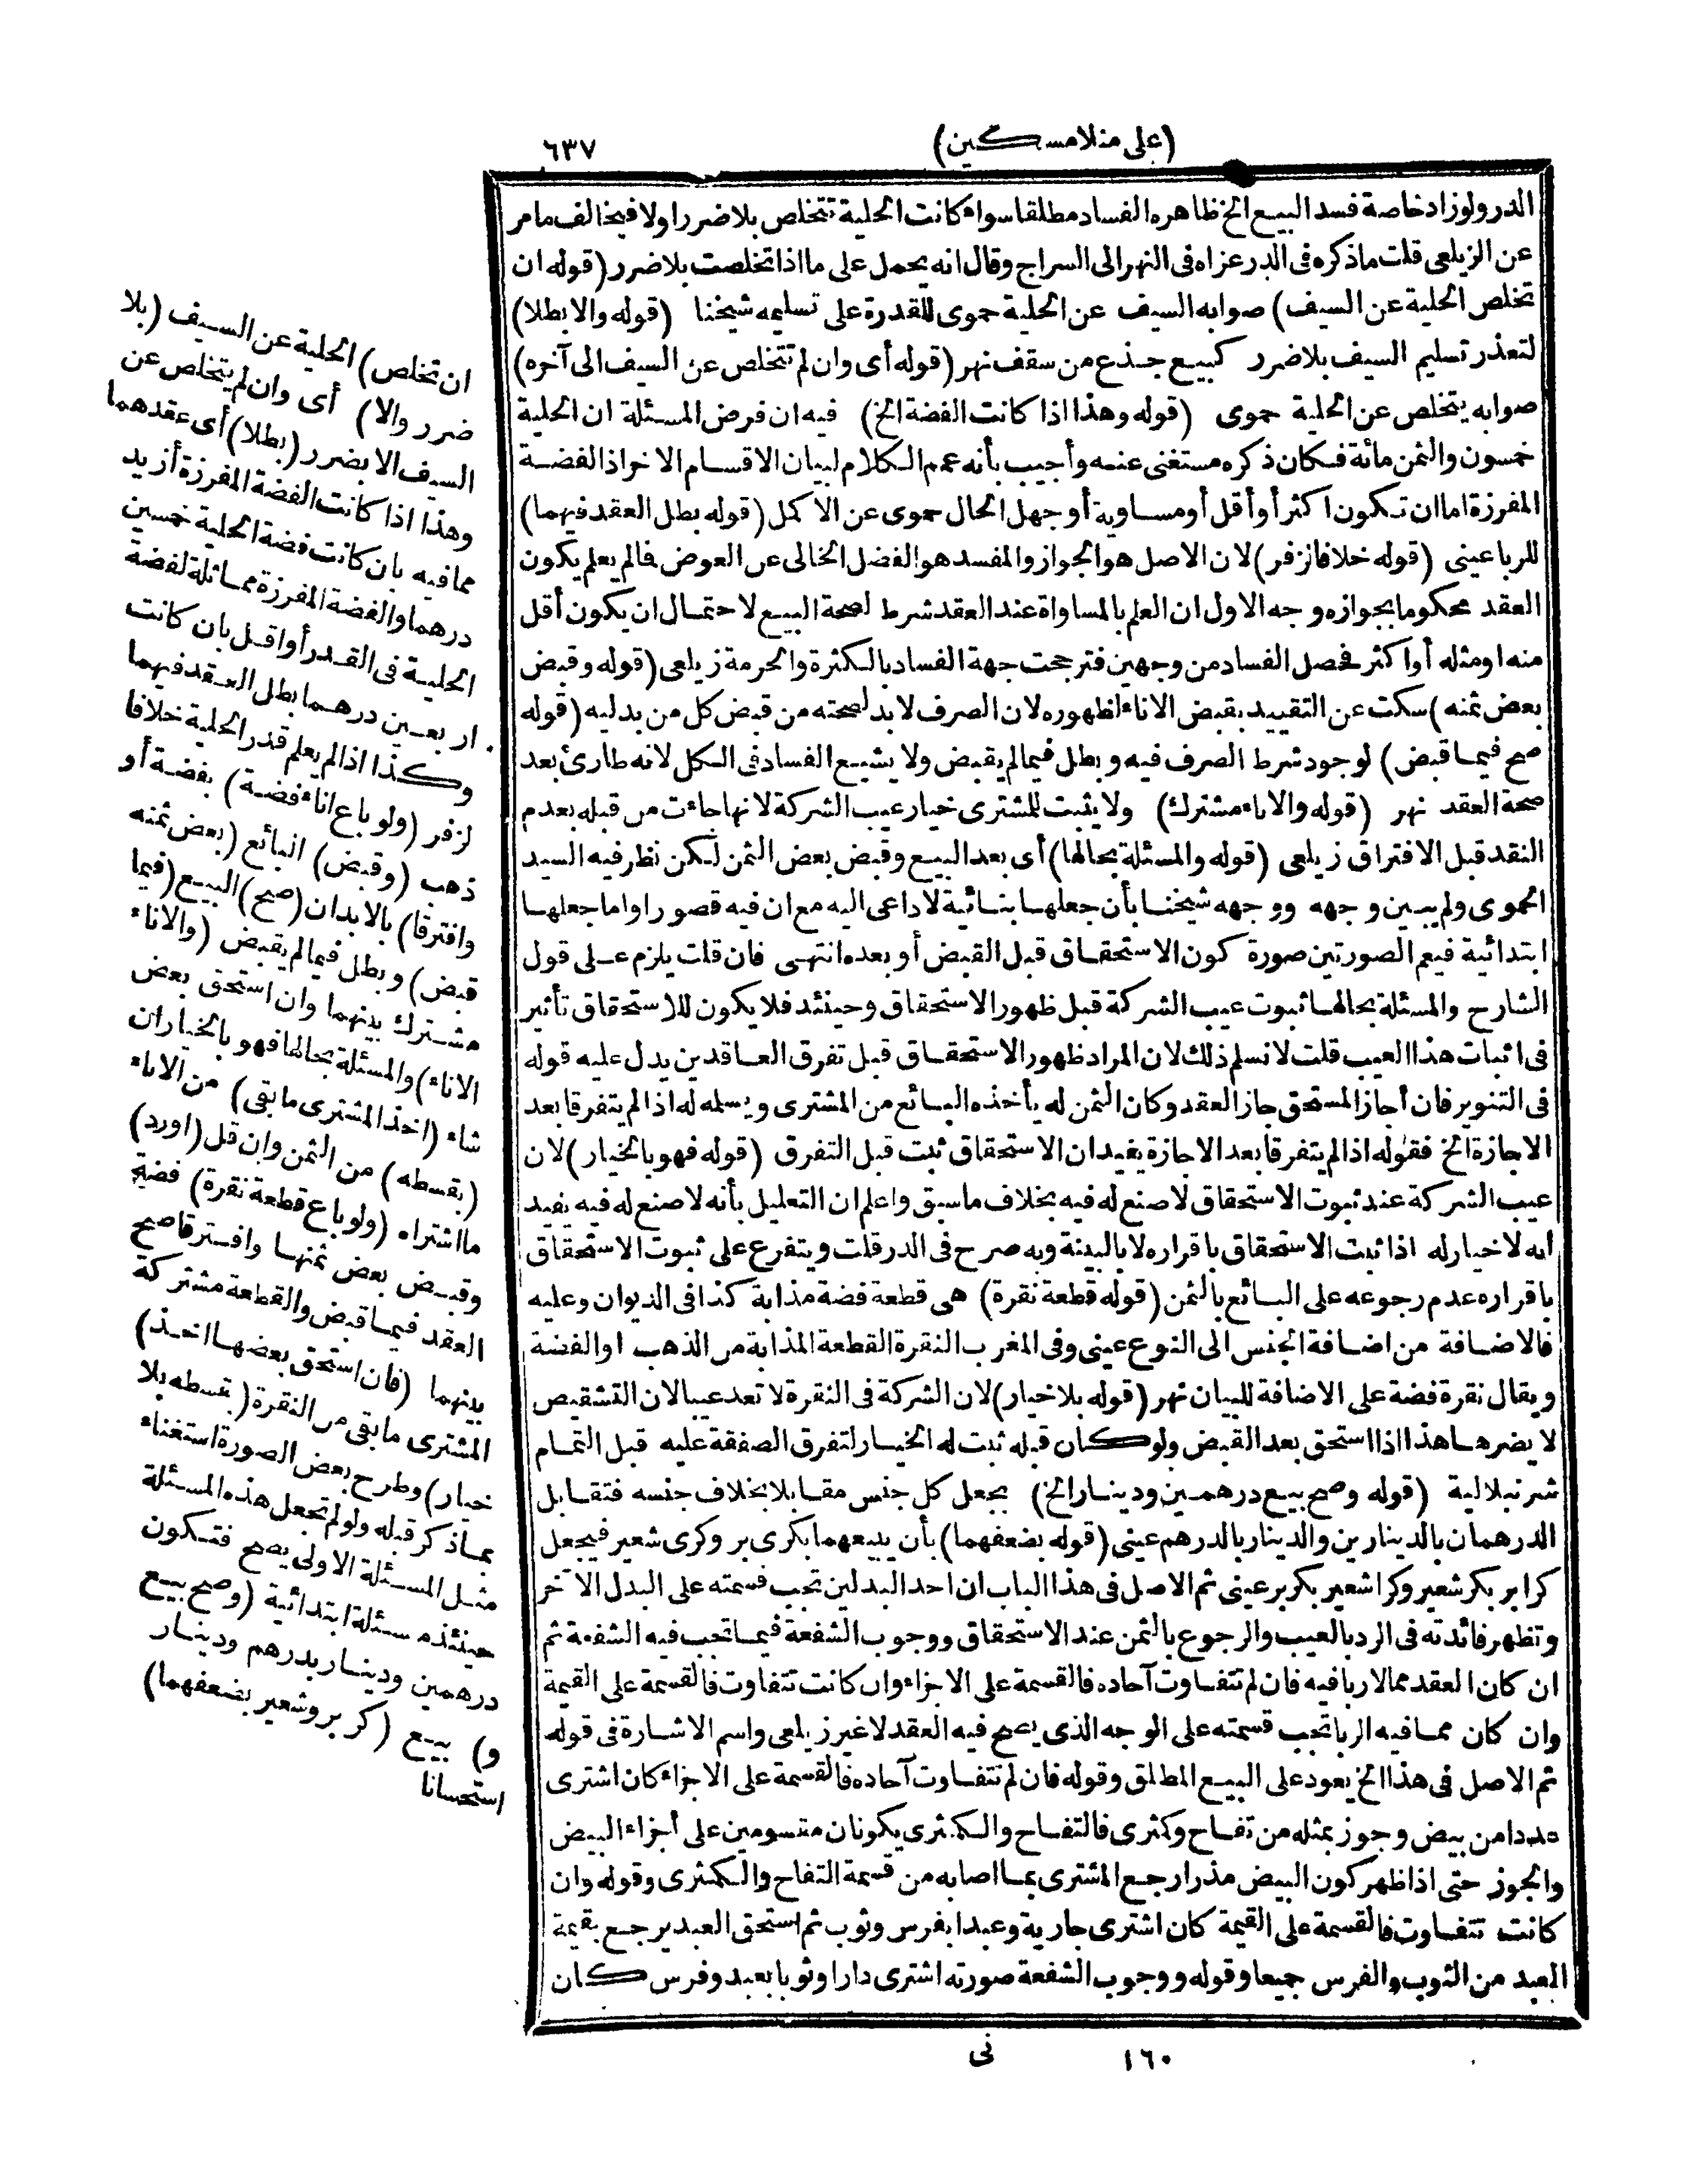 (على منلامسكين)
٦٣٧
الدر ولو زاد خاصة فسد البيع الخ ظاهره الفساد مطلقا سواء كانت الحلية تتخلص بلا ضرر اولا فيخالف مامر
عن الزيلعى قلت ماذكره فى الدر عزاه فى النهر الى السراج وقال انه يحمل على ما اذا تخلصت بلا ضرر (قوله ان
تخلص الحلية عن السيف) صوابه السيف عن الحلية حموى للقدرة على تسليمه شيخنا (قوله والا بطلا)
لتعذر تسليم السيف بلا ضرر كبيع جذع من سقف نهر (قوله أى وان لم تتخلص عن السيف الى آخره)
صوابه يتخلص عن الحلية حموى (قوله وهذا اذا كانت الفضة الخ) فيه ان فرض المسئلة ان الحلية
خمسون والثمن مائة فكان ذكره مستغنى عنه وأجيب بأنه عمم الكلام لبيان الاقسام الاخر اذ الفضة
المفرزة اما ان تكون اكثر أو أقل أو مساوية أو جهل الحال حموى عن الاكمل (قوله بطل العقد فيهما)
للربا عينى (قوله خلافا لزفر) لان الاصل هو الجواز والمفسد هو الفضل الخالى عن العوض فالم يعلم يكون
العقد محكوما بجوازه وجه الاول ان العلم بالمساواة عند العقد شرط لصحة البيع لاحتمال ان يكون أقل
منه او مثله أو اكثر فحصل الفساد من وجهين فترجحت جهة الفساد بالكثرة والحرمة زيلعى (قوله وقبض
بعض ثمنه) سكت عن التقييد بقبض الاناء لظهوره لان الصرف لا بد لصحته من قبض كل من بدليه (قوله
صح فيما قبض) لوجود شرط الصرف فيه وبطل فيما لم يقبض ولا يشيع الفساد فى الكل لانه طارئ بعد
صحة العقد نهر (قوله والاناء مشترك) ولا يثبت للمشترى خيار عيب الشركة لانها جاءت من قبله بعدم
النقد قبل الافتراق زيلعى (قوله والمسئلة بحالها) أى بعد البيع وقبض بعض الثمن لكن نظر فيه السيد
الحموى ولم يبين وجهه ووجهه شيخنا بأن جعلها بنائية لا داعى اليه مع ان فيه قصورا واما جعلها
ابتدائية فيعم الصورتين صورة كون الاستحقاق قبل القبض أو بعده انتهى فان قلت يلزم على قول
الشارح والمسئلة بحالها ثبوت عيب الشركة قبل ظهور الاستحقاق وحينئذ فلا يكون للاستحقاق تأثير
فى اثبات هذا العيب قلت لا نسلم ذلك لان المراد ظهور الاستحقاق قبل تفرق العاقدين يدل عليه قوله
فى التنوير فان أجاز المستحق جاز العقد وكان الثمن له يأخذه البائع من المشترى ويسلمه له اذا لم يتفرقا بعد
الاجازة الخ فقوله اذا لم يتفرقا بعد الاجازة يفيد ان الاستحقاق ثبت قبل التفرق (قوله فهو بالخيار) لان
عيب الشركة عند ثبوت الاستحقاق لا صنع له فيه بخلاف ماسبق واعلم ان التعليل بأنه لا صنع له فيه يفيد
انه لا خيار له اذا ثبت الاستحقاق باقراره لا بالبينة وبه صرح فى الدر قلت ويتفرع على ثبوت الاستحقاق
باقراره عدم رجوعه على البائع بالثمن (قوله قطعة نقرة) هى قطعة فضة مذابة كذا فى الديوان وعليه
فالاضافة من اضافة الجنس الى النوع عينى وفى المغرب النقرة القطعة المذابة من الذهب او الفضة
ويقال نقرة فضة على الاضافة للبيان نهر (قوله بلا خيار) لان الشركة فى النقرة لا تعد عيبا لان التشقيص
لا يضرها هذا اذا استحق بعد القبض ولو كان قبله ثبت له الخيار لتفرق الصفقة عليه قبل التمام
شرنبلالية (قوله وصح بيع درهمين ودينار الخ) بجعل كل جنس مقابلا بخلاف جنسه فتقابل
الدرهمان بالدينارين والدينار بالدرهم عينى (قوله بضعفهما) بأن يبيعهما بكرى بر وكرى شعير فيجعل
كرا بر بكر شعير وكرا شعير بكر بر عينى ثم الاصل فى هذا الباب ان احد البدلين تجب قسمته على البدل الآخر
وتظهر فائدته فى الرد بالعيب والرجوع بالثمن عند الاستحقاق ووجوب الشفعة فيما تجب فيه الشفعة ثم
ان كان العقد ممالا ربا فيه فان لم تتفاوت آحاده فالقسمة على الاجزاء وان كانت تتفاوت فالقسمة على القيمة
وان كان مما فيه الربا تجب قسمته على الوجه الذى يصح فيه العقد لا غير زيلعى واسم الاشارة فى قوله
ثم الاصل فى هذا الخ يعود على البيع المطلق وقوله فان لم تتفاوت آحاده فالقسمة على الاجزاء كان اشترى
عددا من بيض وجوز بمثله من تفاح وكمثرى فالتفاح والكمثرى يكونان مقسومين على أجزاء البيض
والجوز حتى اذا ظهر كون البيض مذرا رجع المشترى بما اصابه من قسمة التفاح والكمثرى وقوله وان
كانت تتفاوت فالقسمة على القيمة كان اشترى جارية وعبدا بفرس وثوب ثم استحق العبد يرجع بقيمة
العبد من الثوب والفرس جميعا وقوله ووجوب الشفعة صورته اشترى دارا وثوبا بعبد وفرس كان
ان تخلص) الحلية عن السيف (بلا
ضرر والا) أى وان لم يتخلص عن
السيف الا بضرر (بطلا) أى عقدهما
وهذا اذا كانت الفضة المفرزة أزيد
مما فيه بان كانت فضة الحلية خمسين
درهما والفضة المفرزة مماثلة لفضة
الحلية فى القدر أو اقل بان كانت
اربعين درهما بطل العقد فيهما
وكذا اذا لم يعلم قدر الحلية خلافا
لزفر (ولو باع اناء فضة) بفضة أو
ذهب (وقبض) البائع (بعض ثمنه
وافترقا) بالابدان (صح) البيع (فيما
قبض) وبطل فيما لم يقبض (والاناء
مشترك بينهما وان استحق بعض
الاناء) والمسئلة بحالها فهو بالخيار ان
شاء (اخذ المشترى ما بقى) من الاناء
(بقسطه) من الثمن وان قل (اورد)
ما اشتراه (ولو باع قطعة نقرة) فضة
وقبض بعض ثمنها وافترقا صح
العقد فيما قبض والقطعة مشتركة
بينهما (فان استحق بعضها اخذ)
المشترى ما بقى من النقرة (بقسطه بلا
خيار) وطرح بعض الصورة استغناء
بماذكر قبله ولو لم تجعل هذه المسئلة
مثل المسئلة الاولى يصح فتكون
حينئذ مسئلة ابتدائية (وصح بيع
درهمين ودينار بدرهم ودينار
و) بيع (كر بر وشعير بضعفهما)
استحسانا
١٦٠
نى